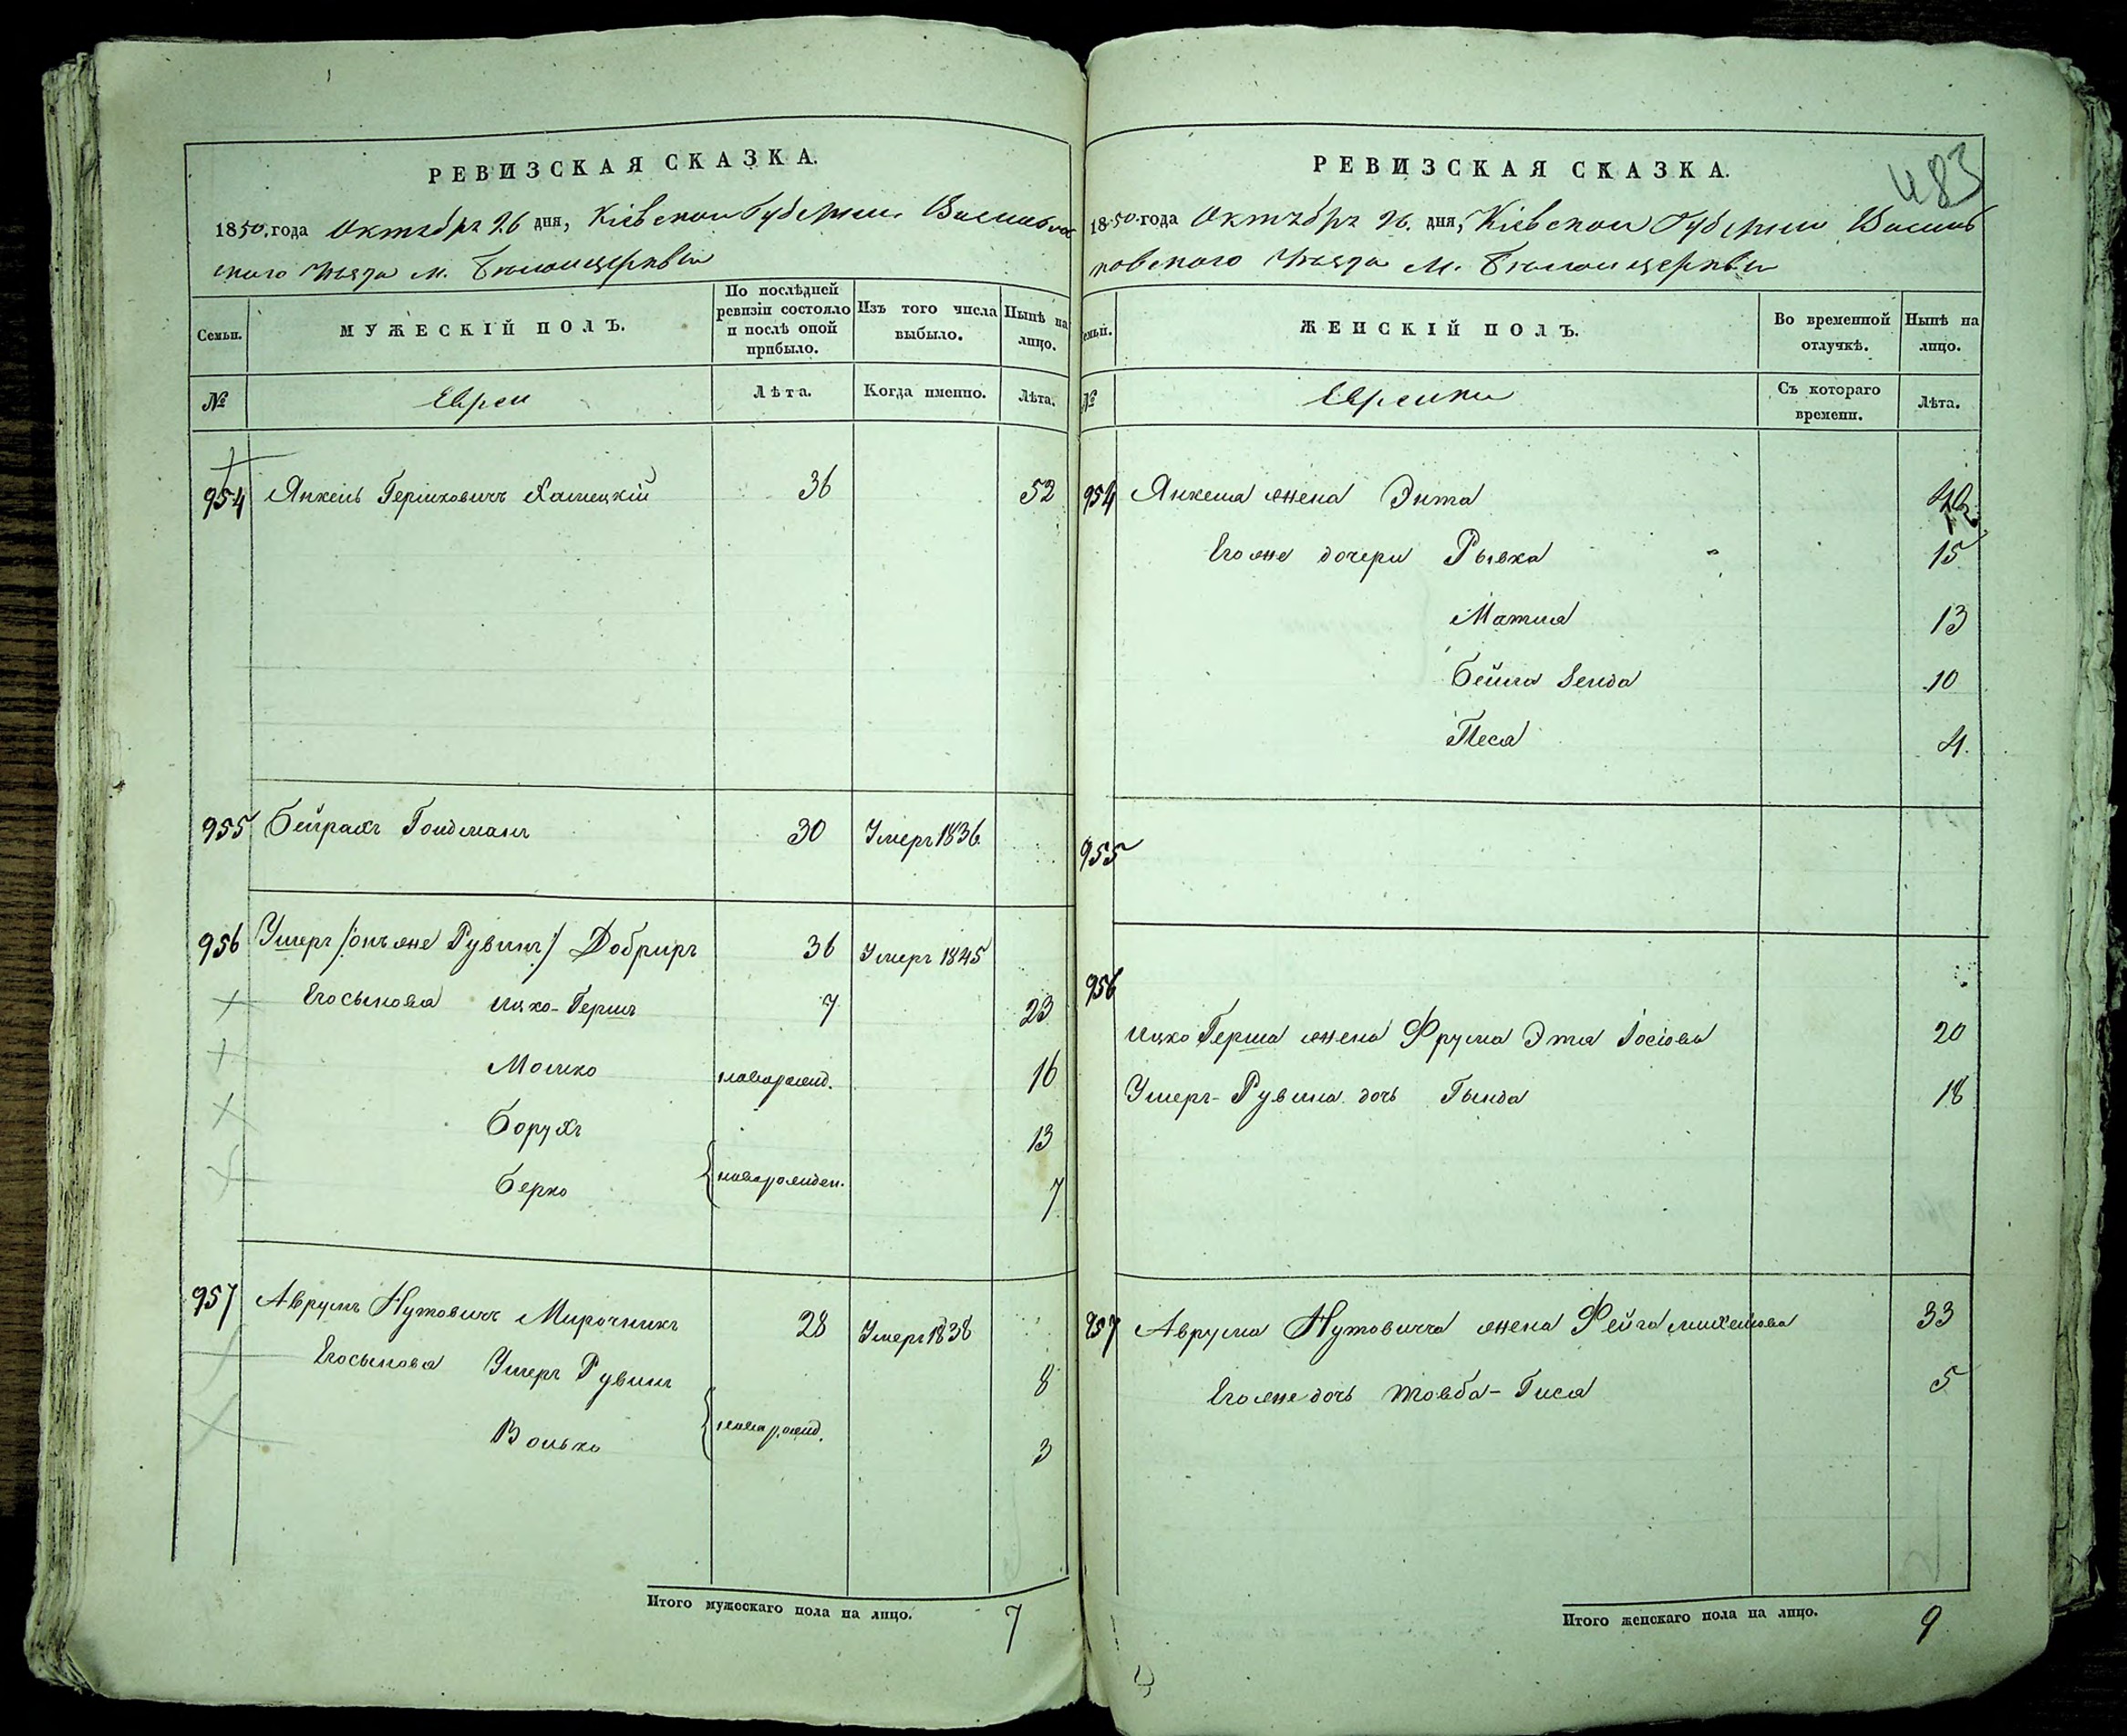 РЕВИЗСКАЯ СКАЗКА.
1850 года Октября 26 дня, Кіевской Губерніи Васильков
скаго Уѣзда м. Бѣлойцеркви
Семьи.
МУЖЕСКІЙ ПОЛЪ.
По послѣдней ревизіи состояло и послѣ оной прибыло.
Изъ того числа выбыло.
Нынѣ на лицо.
№
Евреи
Лѣта.
Когда именно.
Лѣта.
954 Янкель Гершковичъ Халецкій 36 52
955 Бейрахъ Гольдманъ 30 Умеръ 1836
956 Ушеръ /онъ же Рувинъ/ Добриръ 36 Умеръ 1845
Его сыновья Ицко-Гершъ 7 23
Мошко новорожд. 16
Борухъ 13
Берко новорожден. 7
957 Аврумъ Нутовичъ Мирочникъ 28 Умеръ 1838
Его сыновья Ушеръ Рувинъ 8
Волько новорожд. 3
Итого мужескаго пола на лицо. 7
483
РЕВИЗСКАЯ СКАЗКА.
1850 года Октября 26 дня, Кіевской Губерніи Василь
ковскаго Уѣзда м. Бѣлойцеркви
Семьи.
ЖЕНСКІЙ ПОЛЪ.
Во временной отлучкѣ.
Нынѣ на лицо.
№
Еврейки
Съ котораго времени.
Лѣта.
954 Янкеля жена Энта
Его же дочери Рывка 15
Матля 13
Бейла Зельда 10
Песя 4
955
956
Ицко Герша жена Фрума Этя Іосіова 20
Ушеръ-Рувина дочь Гында 18
957 Аврума Нутовича жена Фейга Михелова 33
Его же дочь Товба-Гися 5
Итого женскаго пола на лицо. 9